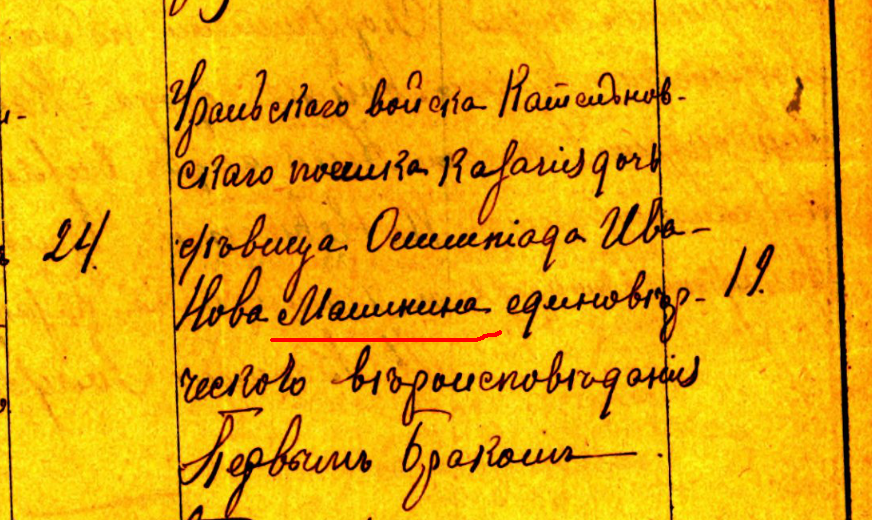 Уральскаго войска Кательнов-
скаго поселка казачія дочь
24. дѣвица Олимпіада Ива-
нова Машинина единовѣр- 19.
ческого вѣроисповѣданія
Первымъ бракомъ